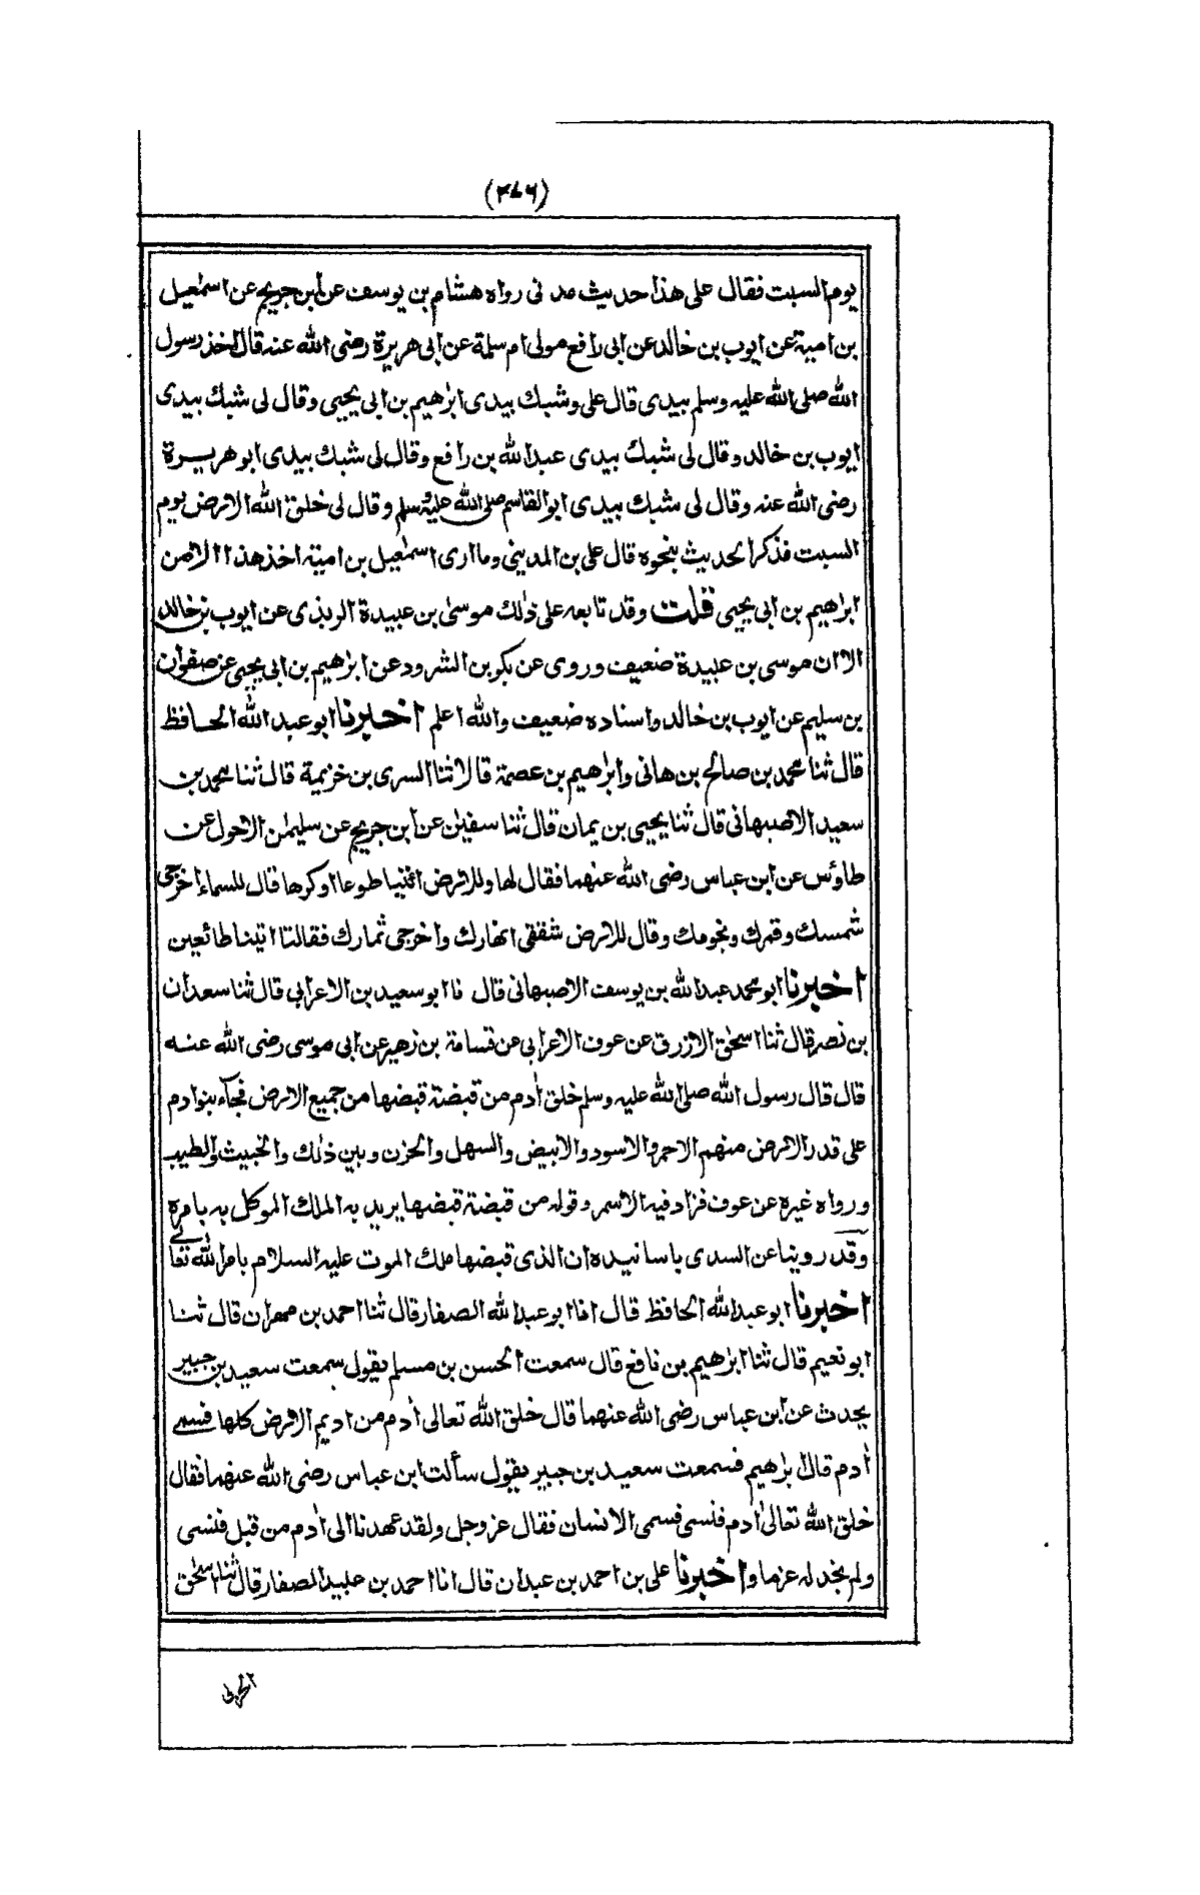 (٢٧٦)
يوم السبت فقال على هذا حديث مدنى رواه هشام بن يوسف عن ابن جريج عن اسمٰعيل
بن امية عن ايوب بن خالد عن ابى رافع مولى ام سلمة عن ابى هريرة رضى الله عنه قال اخذ رسول
الله صلى الله عليه وسلم بيدى قال على وشبك بيدى ابرٰهيم بن ابى يحيى وقال لى شبك بيدى
ايوب بن خالد وقال لى شبك بيدى عبد الله بن رافع وقال لى شبك بيدى ابو هريرة
رضى الله عنه وقال لى شبك بيدى ابو القاسم صلى الله عليه وسلم وقال لى خلق الله الارض يوم
السبت فذكر الحديث بنحوه قال على بن المدينى وما ارى اسمٰعيل بن امية اخذ هذا الا من
ابرٰهيم بن ابى يحيى قلت وقد تابعه على ذٰلك موسىٰ بن عبيدة الربذى عن ايوب بن خالد
الا ان موسى بن عبيدة ضعيف وروى عن بكر بن الشرود عن ابرٰهيم بن ابى يحيى عن صفوان
بن سليم عن ايوب بن خالد واسناده ضعيف والله اعلم اخبرنا ابو عبد الله الحافظ
قال ثنا محمد بن صالح بن هانى وابرٰهيم بن عصمة قالا ثنا السرى بن خزيمة قال ثنا محمد بن
سعيد الاصبهانى قال ثنا يحيى بن يمان قال ثنا سفيٰن عن ابن جريج عن سليمٰن الاحول عن
طاوٗس عن ابن عباس رضى الله عنهما فقال لها وللارض ائتيا طوعا او كرها قال للسماء اخرجى
شمسك وقمرك ونجومك وقال للارض شققى انهارك واخرجى ثمارك فقالتا اتينا طائعين
اخبرنا ابو محمد عبد الله بن يوسف الاصبهانى قال نا ابو سعيد بن الاعرابى قال ثنا سعدان
بن نصر قال ثنا اسحٰق الازرق عن عوف الاعرابى عن قسامة بن زهير عن ابى موسى رضى الله عنه
قال قال رسول الله صلى الله عليه وسلم خلق اٰدم من قبضة قبضها من جميع الارض فجآء بنو ادم
على قدر الارض منهم الاحمر والاسود والابيض والسهل والحزن وبين ذٰلك والخبيث والطيب
ورواه غيره عن عوف فزاد فيه الاسمر وقوله من قبضة قبضها يريد به الملك الموكل به بامره
وقد روينا عن السدى باسانيده ان الذى قبضها ملك الموت عليه السلام بامر الله تعالٰى
اخبرنا ابو عبد الله الحافظ قال انا ابو عبد الله الصفار قال ثنا احمد بن مهران قال ثنا
ابو نعيم قال ثنا ابرٰهيم بن نافع قال سمعت الحسن بن مسلم يقول سمعت سعيد بن جبير
يحدث عن ابن عباس رضى الله عنهما قال خلق الله تعالى اٰدم من اديم الارض كلها فسمى
اٰدم قال ابرٰهيم فسمعت سعيد بن جبير يقول سألت ابن عباس رضى الله عنهما فقال
خلق الله تعالىٰ اٰدم فنسى فسمى الانسان فقال عز وجل ولقد عهدنا الى اٰدم من قبل فنسى
ولم نجد له عزما واخبرنا على بن احمد بن عبدان قال انا احمد بن عبيد الصفار قال ثنا اسحٰق
الحربى